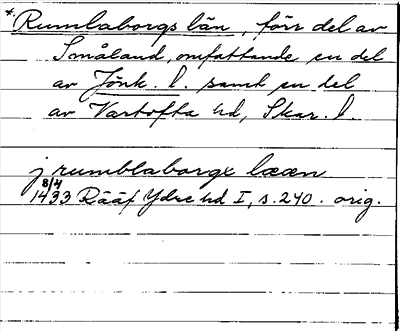 *Rumlaborgs län, förr del av
Småland, omfattande en del
av Jönk. l. samt en del
av Vartofta hd, Skar. l.
j rumblaborgx lææn
8/4
1433 Rääf Ydre hd I, s. 240. orig.